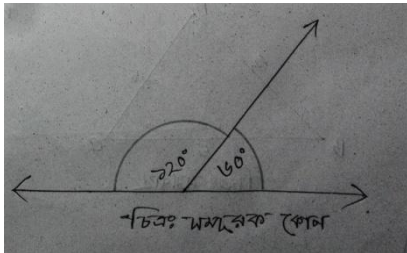 ১২০° ৬০°
চিত্রঃ সম্পূরক কোণ